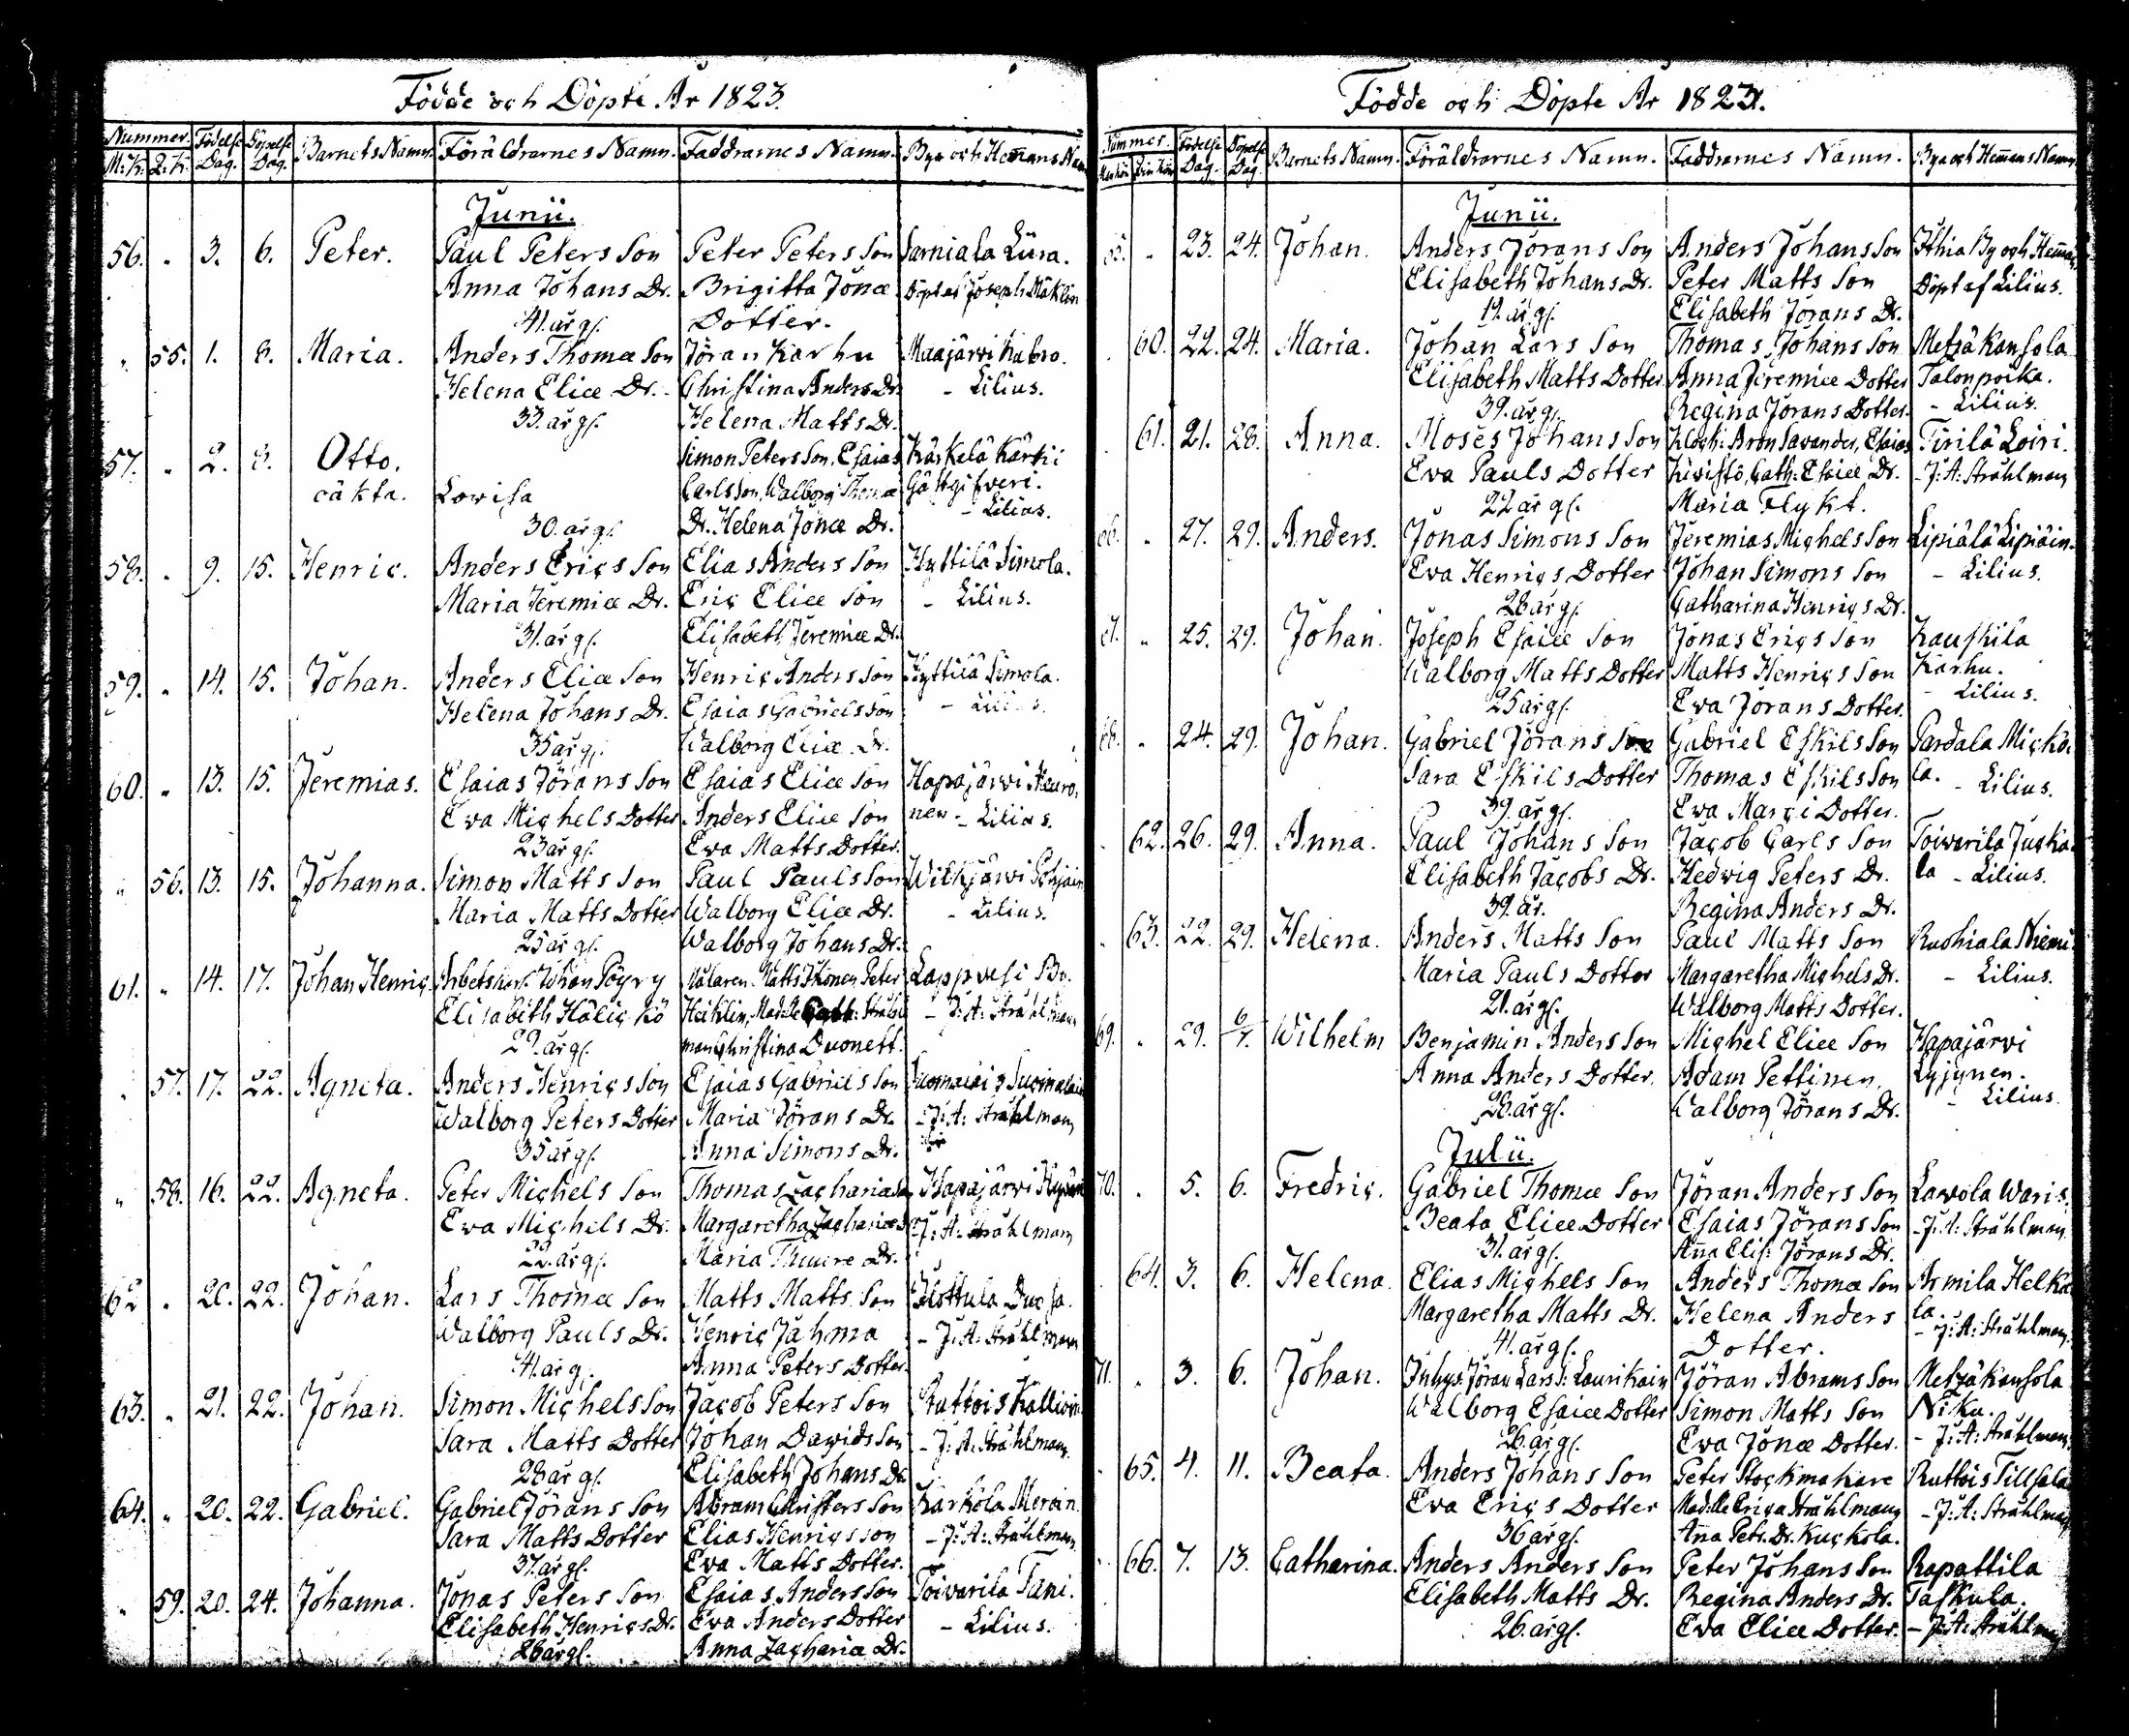 Födde och Döpte År 1823.
Nummer. Födelse Döpelse Barnets Namn. Föräldrarnes Namn. Faddrarnes Namn. Bya och Hemans Namn
M:K. Q:K. Dag. Dag.
Junii.
56. " 3. 6. Peter. Paul Peters Son Peter Peters Son Sarniala Lüra.
Anna Johans Dr. Brigitta Jonæ Döpt af Joseph Mäklin
41. år gl. Dotter.
" 55. 1. 8. Maria. Anders Thomæ Son Jöran Karhu Maajärvi Kabro.
Helena Eliæ Dr. Christina Anders Dr. - Lilius.
33. år gl. Helena Matts Dr.
57. " 2. 8. Otto. Simon Peters Son, Esaias Kärkelä Kärkii
oäkta. Lovisa Carls Son, Walborg Thomæ Gästgifveri.
30. år gl. Dr. Helena Jonæ Dr. - Lilius.
58. " 9. 15. Henric. Anders Erics Son Elias Anders Son Hyttilä Simola.
Maria Jeremiæ Dr. Eric Eliæ Son - Lilius.
31. år gl. Elisabeth Jeremiæ Dr.
59. " 14. 15. Johan. Anders Eliæ Son Henric Anders Son Hyttilä Simola.
Helena Johans Dr. Esaias Gabriels Son - Lilius.
35 år gl. Walborg Eliæ Dr.
60. " 13. 15. Jeremias. Esaias Jörans Son Esaias Eliæ Son Hapajärvi Heuro-
Eva Michels Dotter Anders Eliæ Son nen - Lilius.
23 år gl. Eva Matts Dotter.
" 56. 13. 15. Johanna. Simon Matts Son Paul Pauls Son Wilkjärvi Pohjain
Maria Matts Dotter Walborg Eliæ Dr. - Lilius.
25 år gl. Walborg Johans Dr.
61. " 14. 17. Johan Henric Arbetskarl. Johan Pöyry Målaren Matts Ikonen Peter Lappvesi Bo.
Elisabeth Hälickö Heiklin, Mad:lle Cath: Stråhl- - J: A: Stråhlman
29. år gl. man Christina Duonett.
" 57. 17. 22. Agneta. Anders Henrics Son Esaias Gabriels Son Suomalais Suomalain
Walborg Peters Dotter Maria Jörans Dr. - J: A: Stråhlman
35 år gl. Anna Simons Dr.
" 58. 16. 22. Agneta. Peter Michels Son Thomas Zachariæ Son Hapajärvi
Eva Michels Dr. Margaretha Zachariæ Dr. - J: A: Stråhlman
22. år gl. Maria Dr.
62 " 20. 22. Johan. Lars Thomæ Son Matts Matts Son
Walborg Pauls Dr. Henric Jahma - J: A: Stråhlman
41. år g. Anna Peters Dotter.
63. " 21. 22. Johan. Simon Michels Son Jacob Peters Son Ruttois Kallioin
Sara Matts Dotter Johan Davids Son - J: A: Stråhlman
28 år gl. Elisabeth Johans Dr.
64. " 20. 22. Gabriel. Gabriel Jörans Son Abram Christers Son Kärkölä Meroin.
Sara Matts Dotter Elias Henrics Son - J: A: Stråhlman
37. år gl. Eva Matts Dotter.
" 59. 20. 24. Johanna. Jonas Peters Son Esaias Anders Son Toivarila Tani.
Elisabeth Henrics Dr. Eva Anders Dotter - Lilius.
26 år gl. Anna Zachariæ Dr.
Födde och Döpte År 1823.
Nummer. Födelse Döpelse Barnets Namn. Föräldrarnes Namn. Faddrarnes Namn. Bya och Hemmans Namn
Mankön Qvinkön Dag. Dag.
Junii.
65. " 23. 24. Johan. Anders Jörans Son Anders Johans Son Ithia By och Heman
Elisabeth Johans Dr. Peter Matts Son Döpt af Lilius.
19. år gl. Elisabeth Jörans Dr.
60. 22. 24. Maria. Johan Lars Son Thomas Johans Son Metsäkansola
Elisabeth Matts Dotter Anna Jeremiæ Dotter Talonpoika.
39. år g. Regina Jörans Dotter. - Lilius.
61. 21. 28. Anna. Moses Johans Son Klock: Aron Savander, Esaias Tirilä Loiri
Eva Pauls Dotter Kivistö, Cath: Esaiæ Dr. - J: A: Stråhlman
22 år gl. Maria Flykt.
66. " 27. 29. Anders. Jonas Simons Son Jeremias Michels Son Lipiälä Lipiäin.
Eva Henrics Dotter Johan Simons Son - Lilius.
26 år gl. Catharina Henrics Dr.
67. " 25. 29. Johan. Joseph Esaiæ Son Jonas Erics Son Kauskila
Walborg Matts Dotter Matts Henrics Son Karhu.
25 år gl. Eva Jörans Dotter. - Lilius.
68. " 24. 29. Johan. Gabriel Jörans Son Gabriel Eskils Son Pardala Micko-
Sara Eskils Dotter Thomas Eskils Son la. - Lilius.
39. år gl. Eva Marci Dotter.
62. 26. 29. Anna. Paul Johans Son Jacob Carls Son Toivarila Jucka-
Elisabeth Jacobs Dr. Hedvig Peters Dr. la - Lilius.
39. år. Regina Anders Dr.
63. 22. 29. Helena. Anders Matts Son Paul Matts Son Ruohiala Niemi
Maria Pauls Dotter Margaretha Michels Dr. - Lilius.
21. år gl. Walborg Matts Dotter.
69. " 29. 6/7. Wilhelm Benjamin Anders Son Michel Eliæ Son Hapajärvi
Anna Anders Dotter. Adam Pettinen. Lyjynen.
26. år gl. Walborg Jörans Dr. - Lilius.
Julii.
70. " 5. 6. Fredric. Gabriel Thomæ Son Jöran Anders Son Lavola Waris.
Beata Eliæ Dotter Esaias Jörans Son - J: A: Stråhlman
31. år gl. Ana Elis: Jörans Dr.
64. 3. 6. Helena. Elias Michels Son Anders Thomæ Son Armila Helka
Margaretha Matts Dr. Helena Anders la.
41. år gl. Dotter. - J: A: Stråhlman.
71. " 3. 6. Johan. Inhys. Jöran Lars S: Laurikain Jöran Abrams Son Metsäkansola
Walborg Esaiæ Dotter Simon Matts Son Niku.
26. år gl. Eva Jonæ Dotter. - J: A: Stråhlman.
65. 4. 11. Beata. Anders Johans Son Peter Stockmakare Ruttois Tillsala
Eva Erics Dotter Mad:lle Erica Stråhlman - J: A: Stråhlman
36 år gl. Ana Petr. Dr. Kuckola.
66. 7. 13. Catharina. Anders Anders Son Peter Johans Son Rapattila
Elisabeth Matts Dr. Regina Anders Dr. Taskula.
26. år gl. Eva Eliæ Dotter. - J: A: Stråhlman